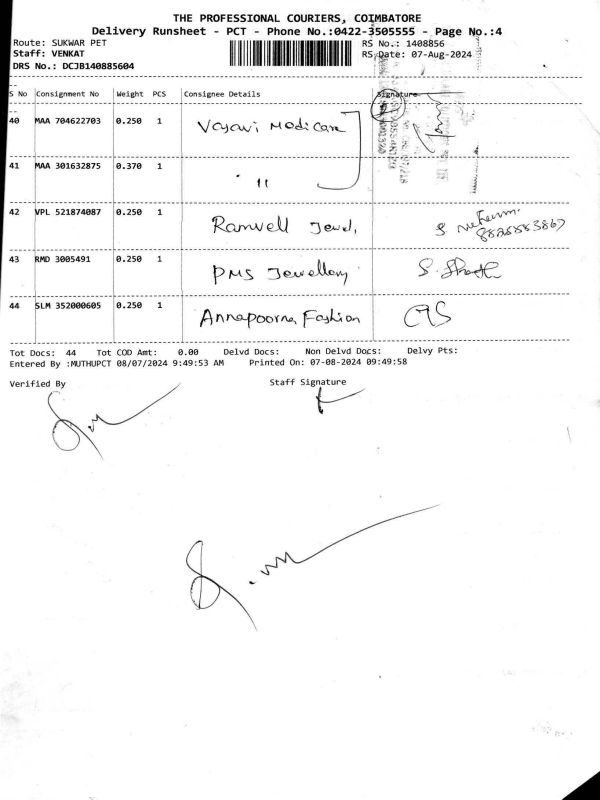 THE PROFESSIONAL COURIERS, COIMBATORE
Delivery Runsheet - PCT - Phone No.:0422-3505555 - Page No.:4
Route: SUKWAR PET RS No.: 1408856
Staff: VENKAT RS Date: 07-Aug-2024
DRS No.: DCJB140885604
S No Consignment No Weight PCS Consignee Details Signature
40 MAA 704622703 0.250 1 Vasavi Medicare
41 MAA 301632875 0.370 1 " 11
42 VPL 521874087 0.250 1 Ramvell Jewel,
43 RMD 3005491 0.250 1 PMS Jewellery
44 SLM 352000605 0.250 1 Annapoorna Fashion
Tot Docs: 44 Tot COD Amt: 0.00 Delvd Docs: Non Delvd Docs: Delvy Pts:
Entered By :MUTHUPCT 08/07/2024 9:49:53 AM Printed On: 07-08-2024 09:49:58
Verified By Staff Signature